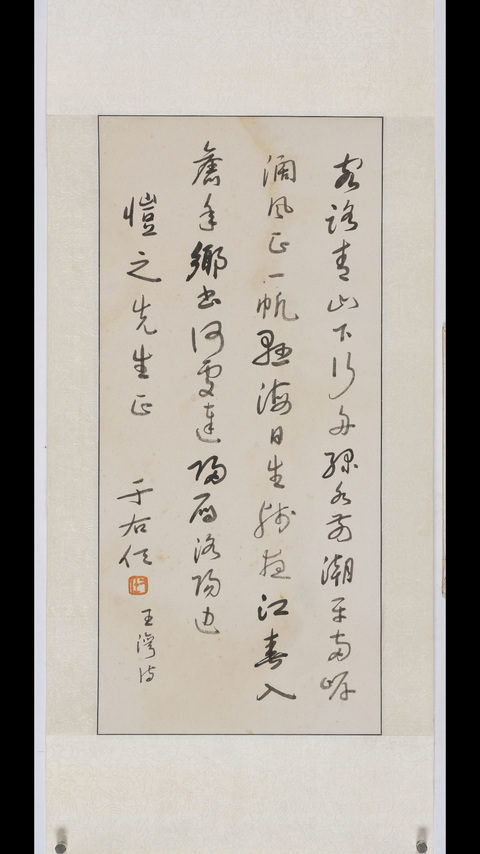 客路青山下行舟綠水前潮平兩岸
闊風正一帆懸海日生殘夜江春入
舊年鄉書何處達歸雁洛陽邊
愷之先生正 于右任
王灣詩